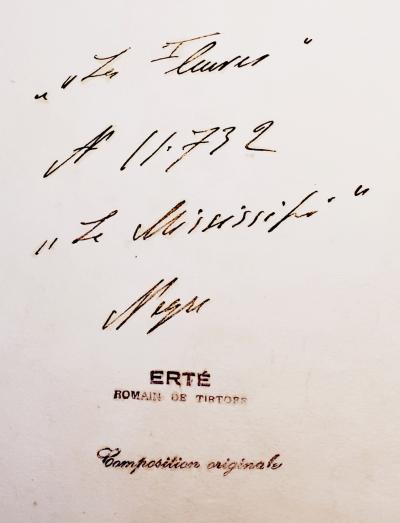 „Les Fleuves"
N 11.732
„Le Mississipi"
Nègre
ERTÉ
ROMAIN DE TIRTOFF
Composition originale